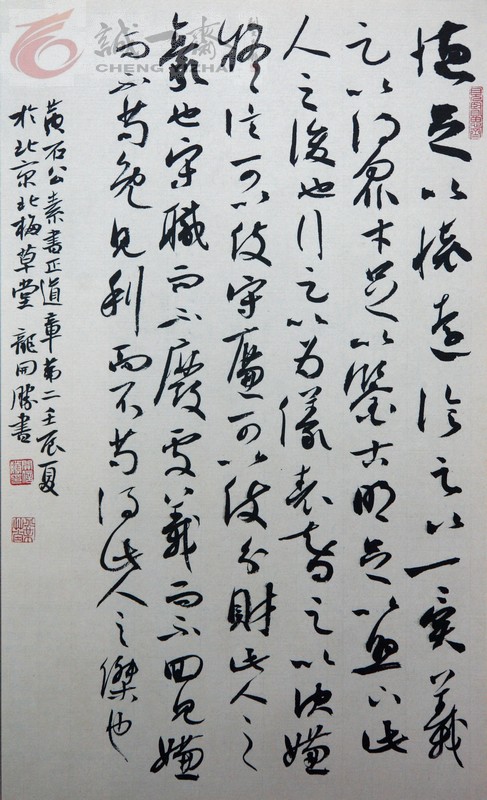 誠一齋
CHENG YIZHAI
德足以懷遠信足以一異義
足以得眾才足以鑒古明足以照下此
人之俊也行足以为儀表智足以决嫌
疑信可以使守廉可以使分財此人之
豪也守職而不廢處義而不回見嫌
而不苟免見利而不苟得此人之傑也
黄石公素書正道章第二壬辰夏
於北京北梅草堂 龍開勝書